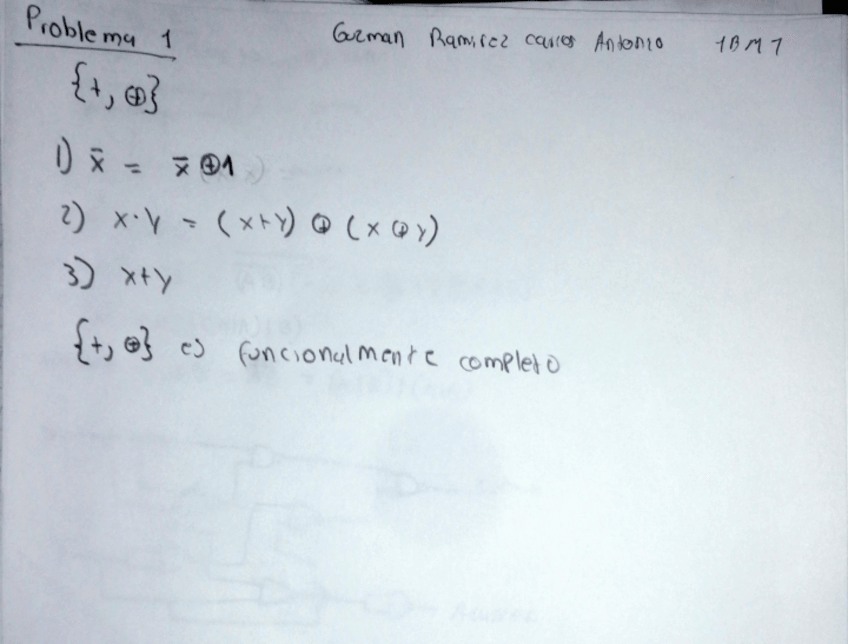 Problema 1
Guzman Ramirez Carlos Antonio 1BM1
{+, ⊕}
1) x̄ = x̄ ⊕ 1
2) x·y = (x+y) ⊕ (x ⊕ y)
3) x+y
{+, ⊕} es funcionalmente completo